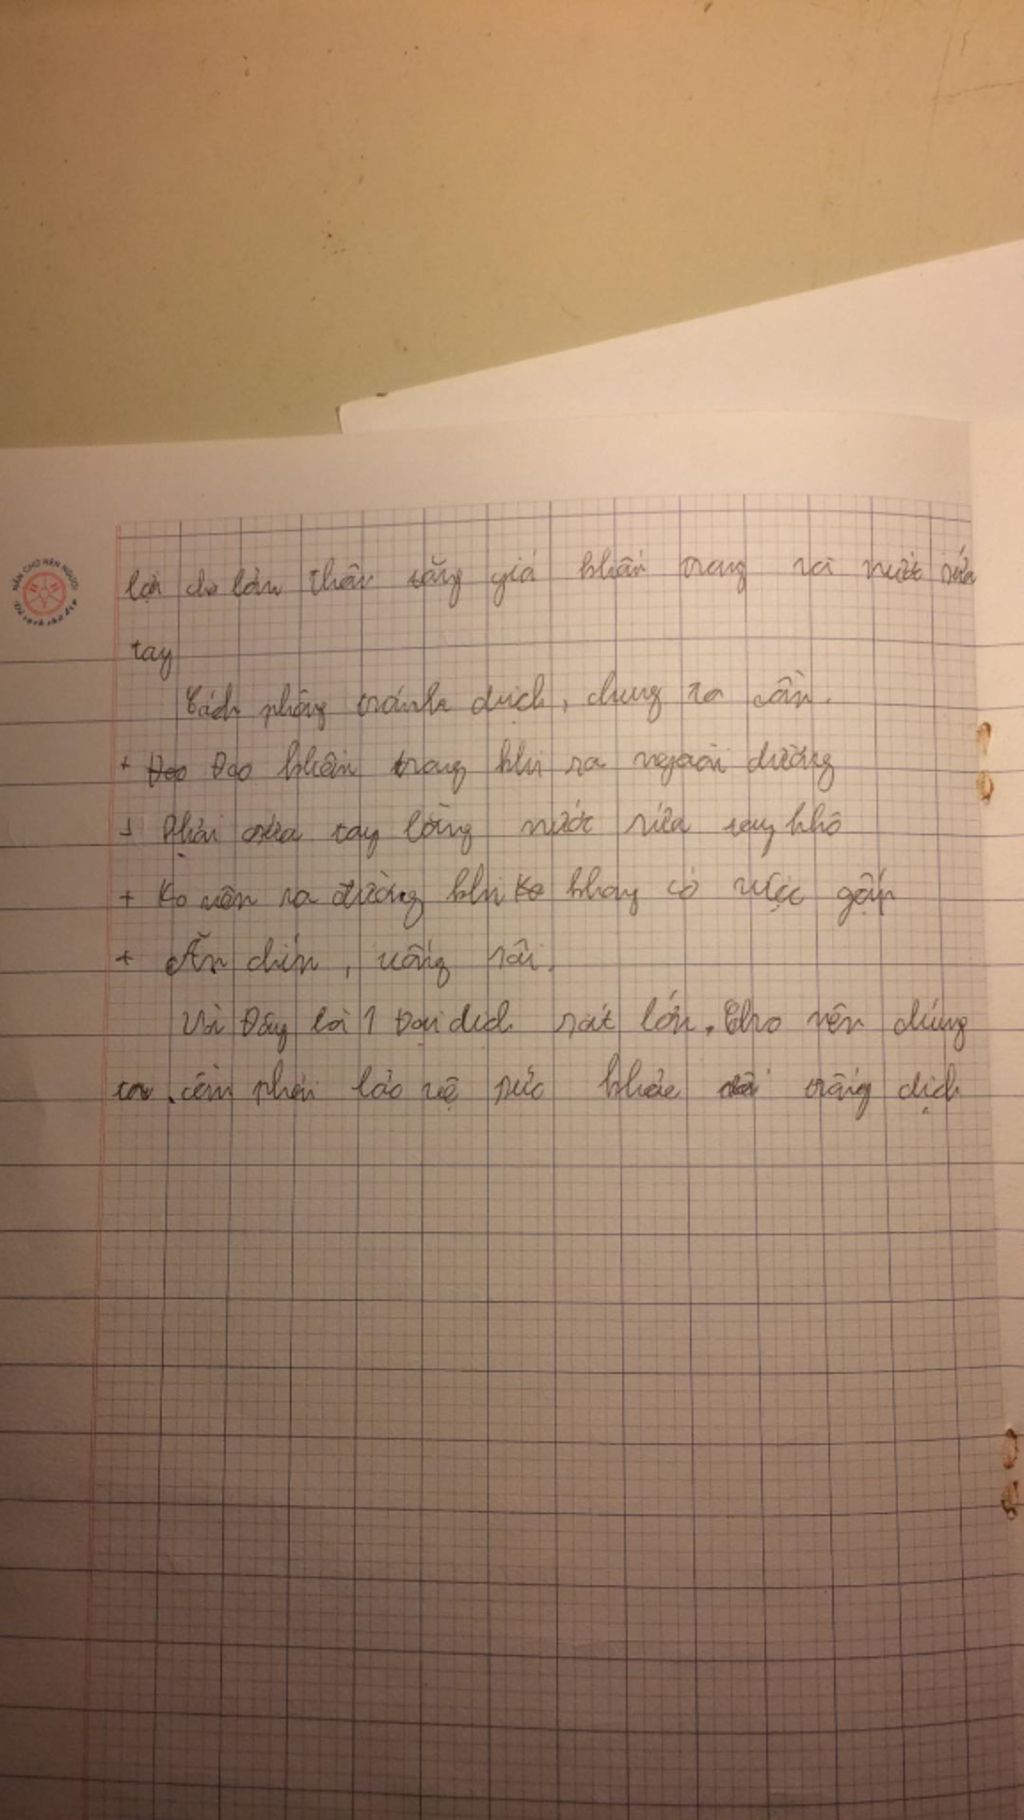 NÉN CHỮ NÊN NGƯỜI
lợi do bán thêm tăng giá khẩu trang và nước rửa
tay
Cách phòng tránh dịch, chung ta cần.
+ Đeo Đeo khẩu trang khi ra ngoài đường
+ Phải rửa tay bằng nước rửa tay khô
+ Ko nên ra đường khi ko không có việc gấp
+ Ăn chín, uống sôi.
Vì Đây là 1 Đại dịch rất lớn, Cho nên chúng
ta cần phải bảo vệ sức khỏe trống dịch